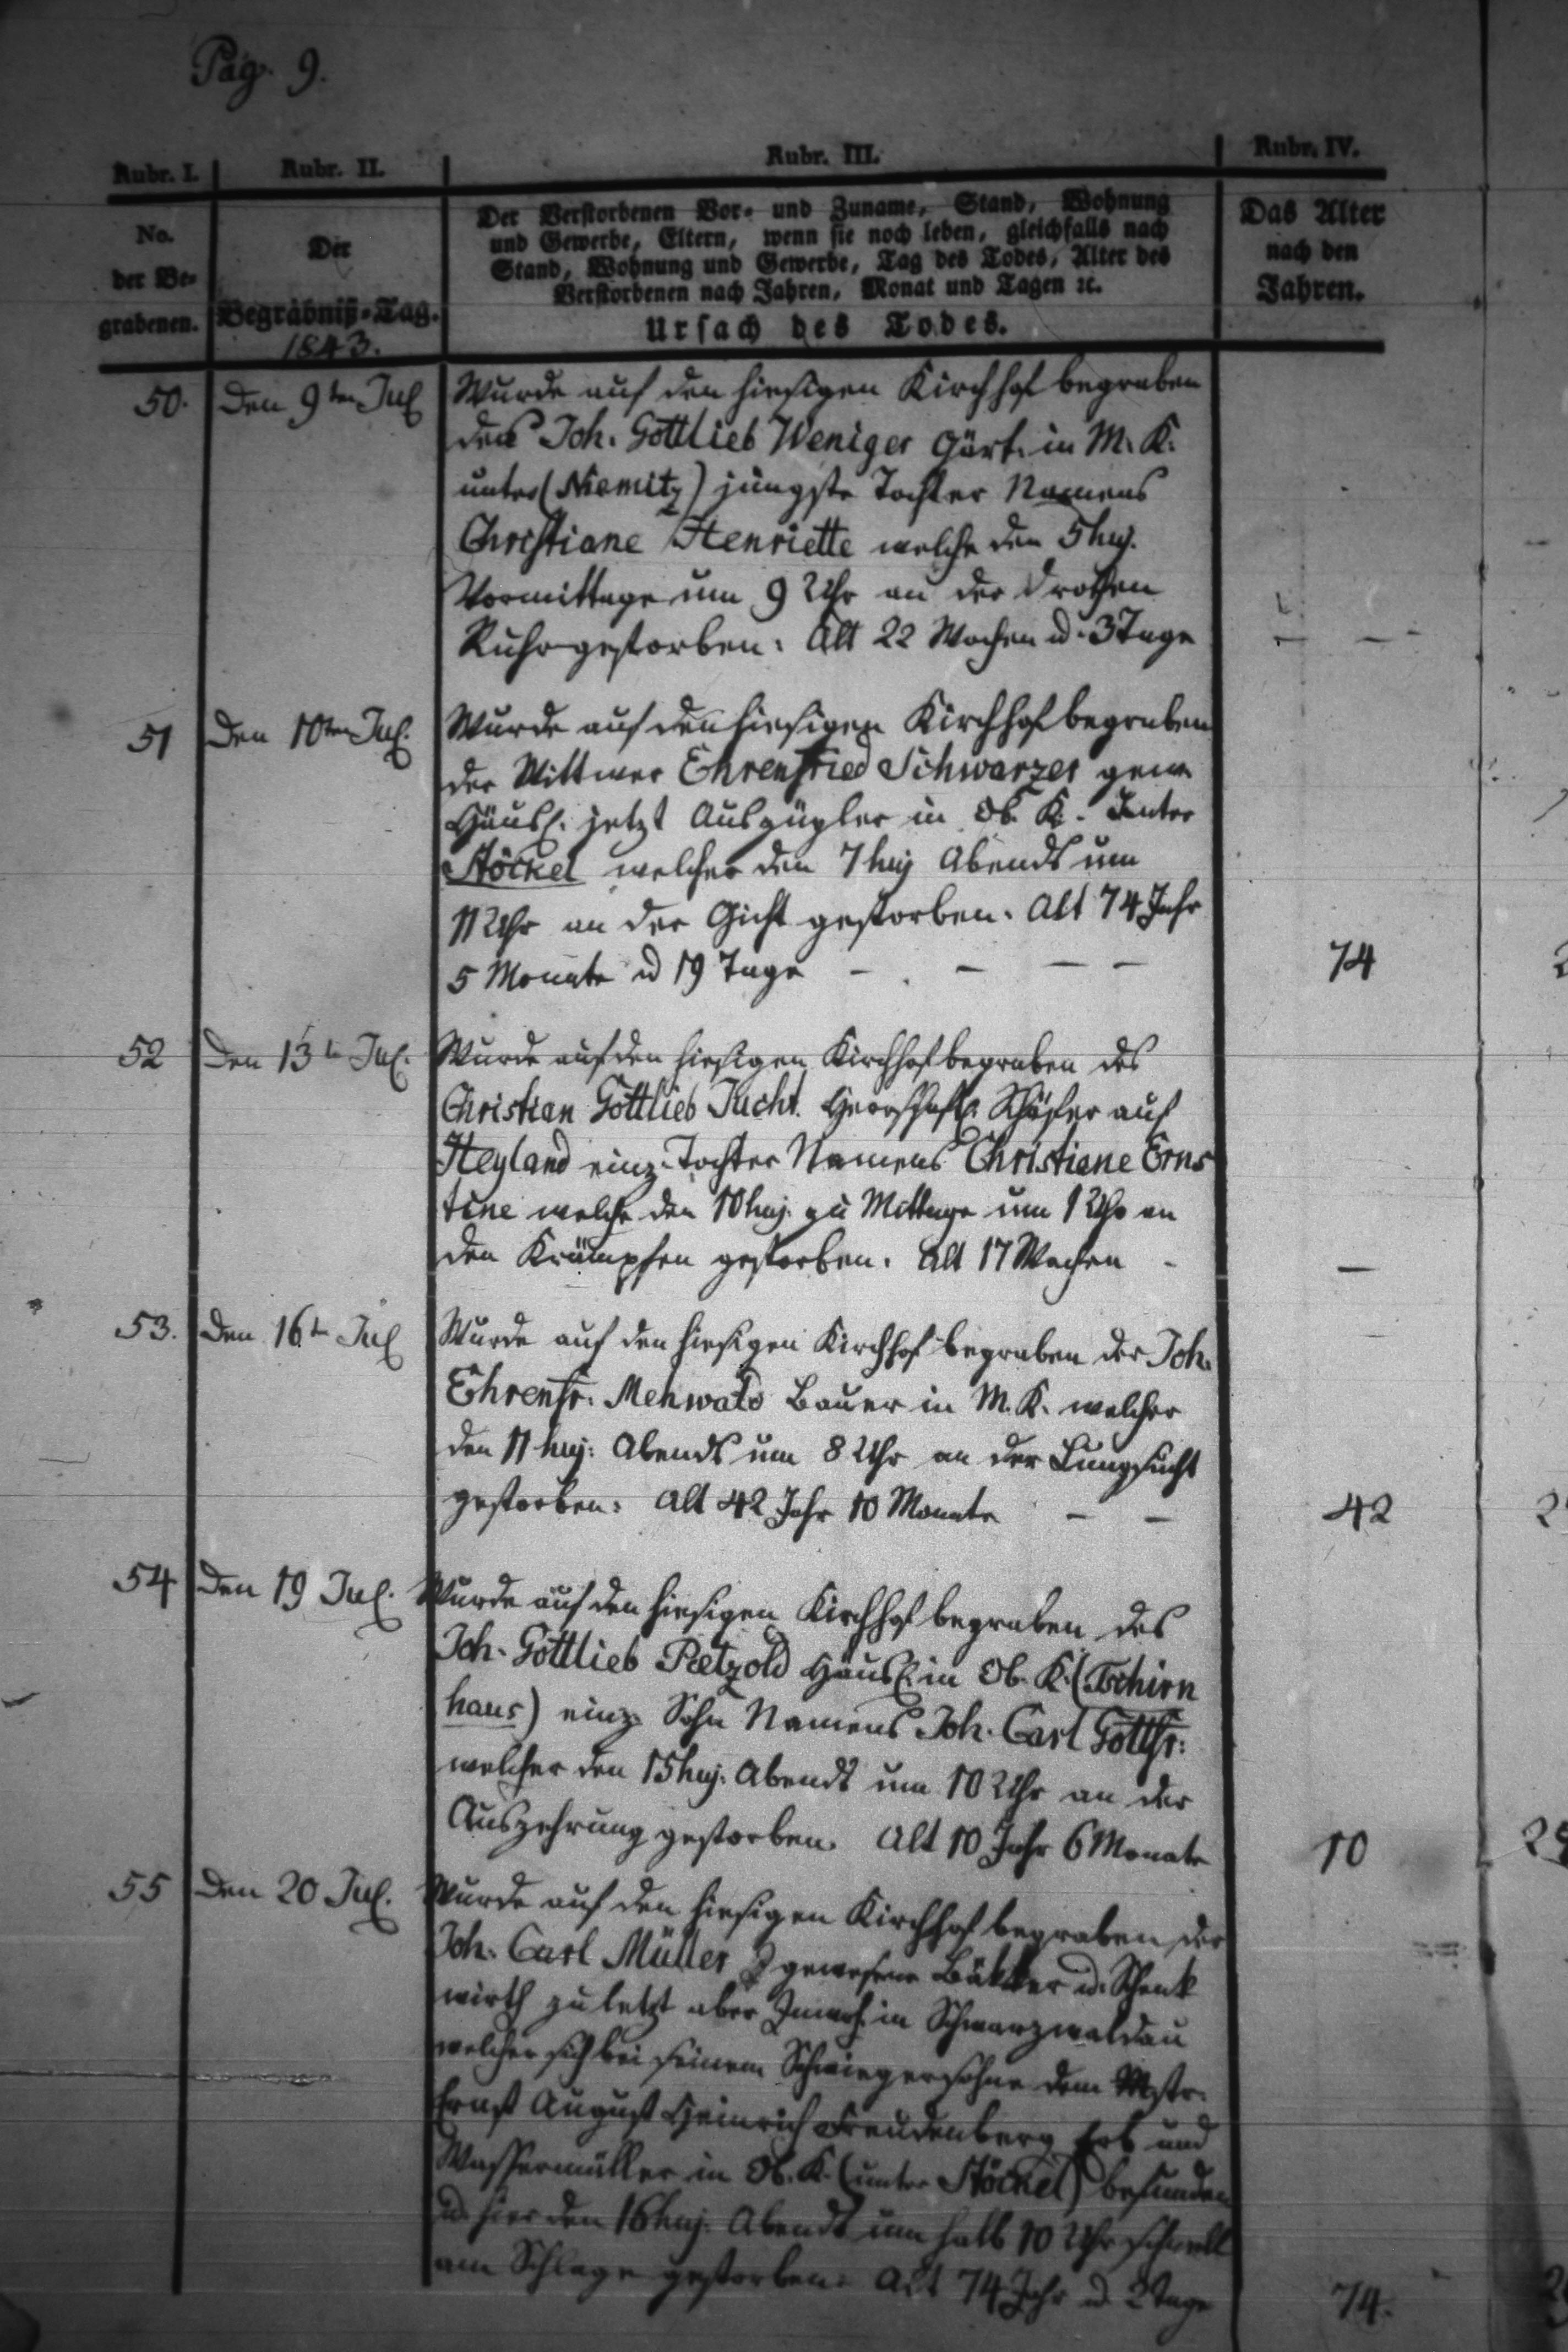 Pag. 9.
Rubr. I. Rubr. II. Rubr. III. Rubr. IV.
No.
der Be-
grabenen.
Der
Begräbniß-Tag.
1843.
Der Verstorbenen Vor- und Zuname, Stand, Wohnung
und Gewerbe, Eltern, wenn sie noch leben, gleichfalls nach
Stand, Wohnung und Gewerbe, Tag des Todes, Alter des
Verstorbenen nach Jahren, Monat und Tagen ꝛc.
Ursach des Todes.
Das Alter
nach den
Jahren.
50. Den 9ten Jul Wurde auf den hiesigen Kirchhof begraben
des Joh. Gottlieb Weniger Gärt. in M. K.
unter (Niemitz) jüngste Tochter Namens
Christiane Henriette welche den 5 huj.
Vormittage um 9 Uhr an der
Ruhr gestorben: Alt 22 Wochen u. 3 Tage —
51 Den 10ten Jul. Wurde auf den hiesigen Kirchhof begraben
der Wittwer Ehrenfried Schwarzer gew.
Häusl. jetzt Auszügler in Ob. K. Unter
Stöckel welcher den 7 huj Abends um
11 Uhr an der Gicht gestorben. Alt 74 Jahr
5 Monate u 19 Tage — — — — 74
52 Den 13t Jul. Wurde auf den hiesigen Kirchhof begraben des
Christian Gottlieb Jucht. Herrschaftl. Schäfer auf
Heyland einz. Tochter Namens Christiane Erns
tine welche den 10 huj. zu Mittage um 1 Uhr an
den Krämpfen gestorben. Alt 17 Wochen - —
53. Den 16t Jul Wurde auf den hiesigen Kirchhof begraben der Joh.
Ehrenfr. Mehwald Bauer in M. K. welcher
den 11 huj: Abends um 8 Uhr an der Lungsucht
gestorben: Alt 42 Jahr 10 Monate — — 42
54 Den 19 Jul. Wurde auf den hiesigen Kirchhof begraben des
Joh. Gottlieb Pætzold Häusl. in Ob. K. (Tschirn
haus) einz. Sohn Namens Joh. Carl Gottfr:
welcher den 15 huj. Abends um 10 Uhr an der
Auszehrung gestorben. Alt 10 Jahr 6 Monate 10
55 Den 20 Jul. Wurde auf den hiesigen Kirchhof begraben der
Joh. Carl Müller gewesene Bäkker u. Schenk
wirth zuletzt aber Inwoh. in Schwarzwaldau
welcher sich bei seinem Schwiegersohne dem Mstr.
Ernst August Heinrich Freudenberg Erb und
Wassermüller in Ob. K. (unter Stöckel) befunden
u. hier den 16 huj. Abends um halb 10 Uhr schnell
am Schlage gestorben. Alt 74 Jahr u 2 Tage 74.